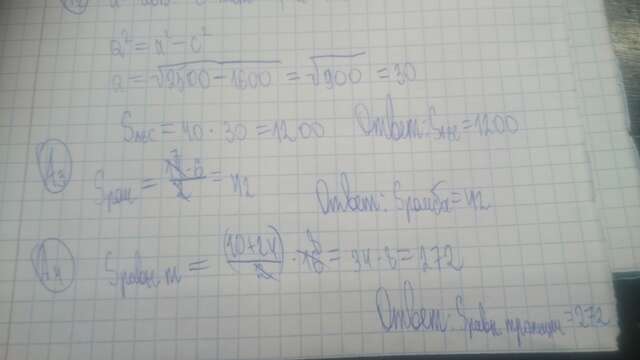 a² = x² - c²
a = √2500 - 1600 = √900 = 30
= 40 · 30 = 1200 Ответ: = 1200
A3 Sром = 14 · 6 / 2 = 42
Ответ: Sромба = 42
A4 Sравн т = (10+24) / 2 · 16 8 = 34 · 8 = 272
Ответ: Sравн трапеции = 272